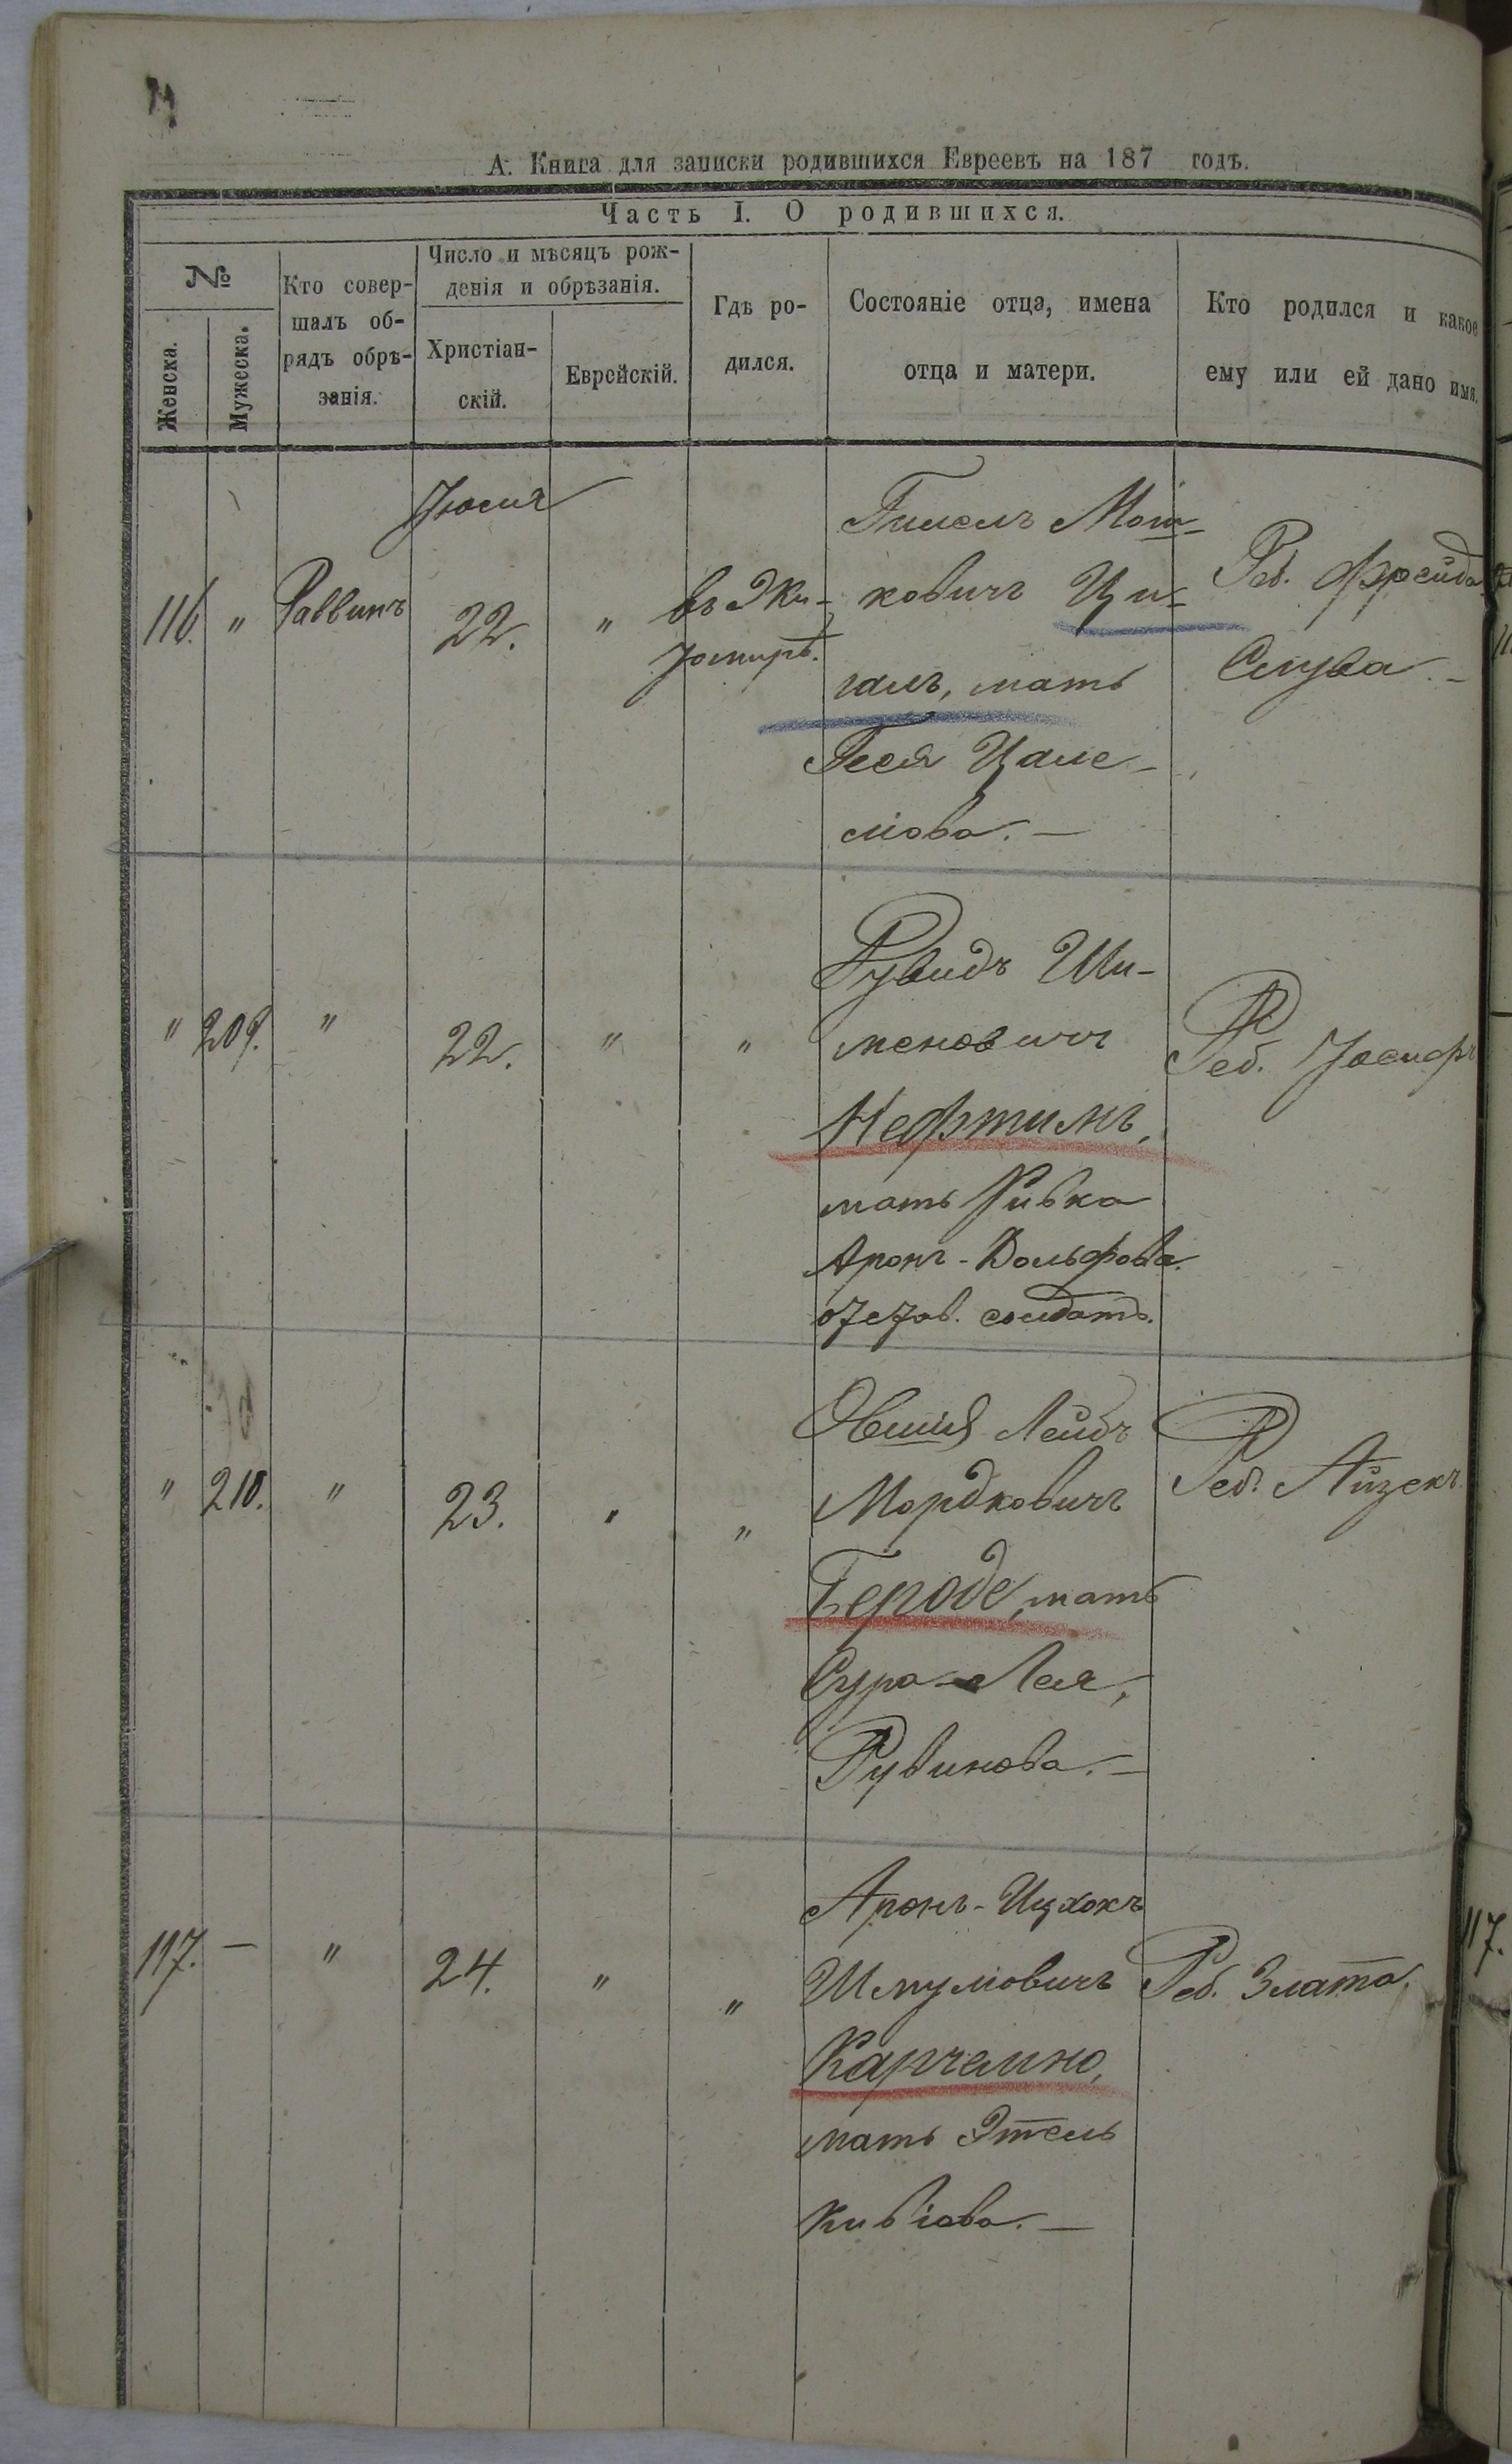 А. Книга для записки родившихся Евреевъ на 187 годъ.
Часть I. О родившихся.
№
Женска.
Мужеска.
Кто совер-
шалъ об-
рядъ обрѣ-
занія.
Число и мѣсяцъ рож-
денія и обрѣзанія.
Христіан-
скій.
Еврейскій.
Гдѣ ро-
дился.
Состояніе отца, имена
отца и матери.
Кто родился и какое
ему или ей дано имя.
116. " Раввинъ
22.
"
въ Жи-
томирѣ.
Мош-
ковичъ Ци-
галъ, мать
Геся Цале-
мова. —
Реб. Фрейда
" 209. " 22. " "
Рувидъ Ши-
меновичъ
Нефтинъ,
мать Ривка
Аронъ-Вольфова.
солдатъ.
Реб. Іосифъ
" 210. " 23. " "
Овшія Лейбъ
Мордковичъ
Героде, мать
Сура-Лея,
Рувинова. —
Реб. Айзекъ.
117. — " 24. " "
Аронъ-Ицхокъ
Шмуловичъ
Карчемно,
мать Этель
Кивіова. —
Реб. Злата.
117.